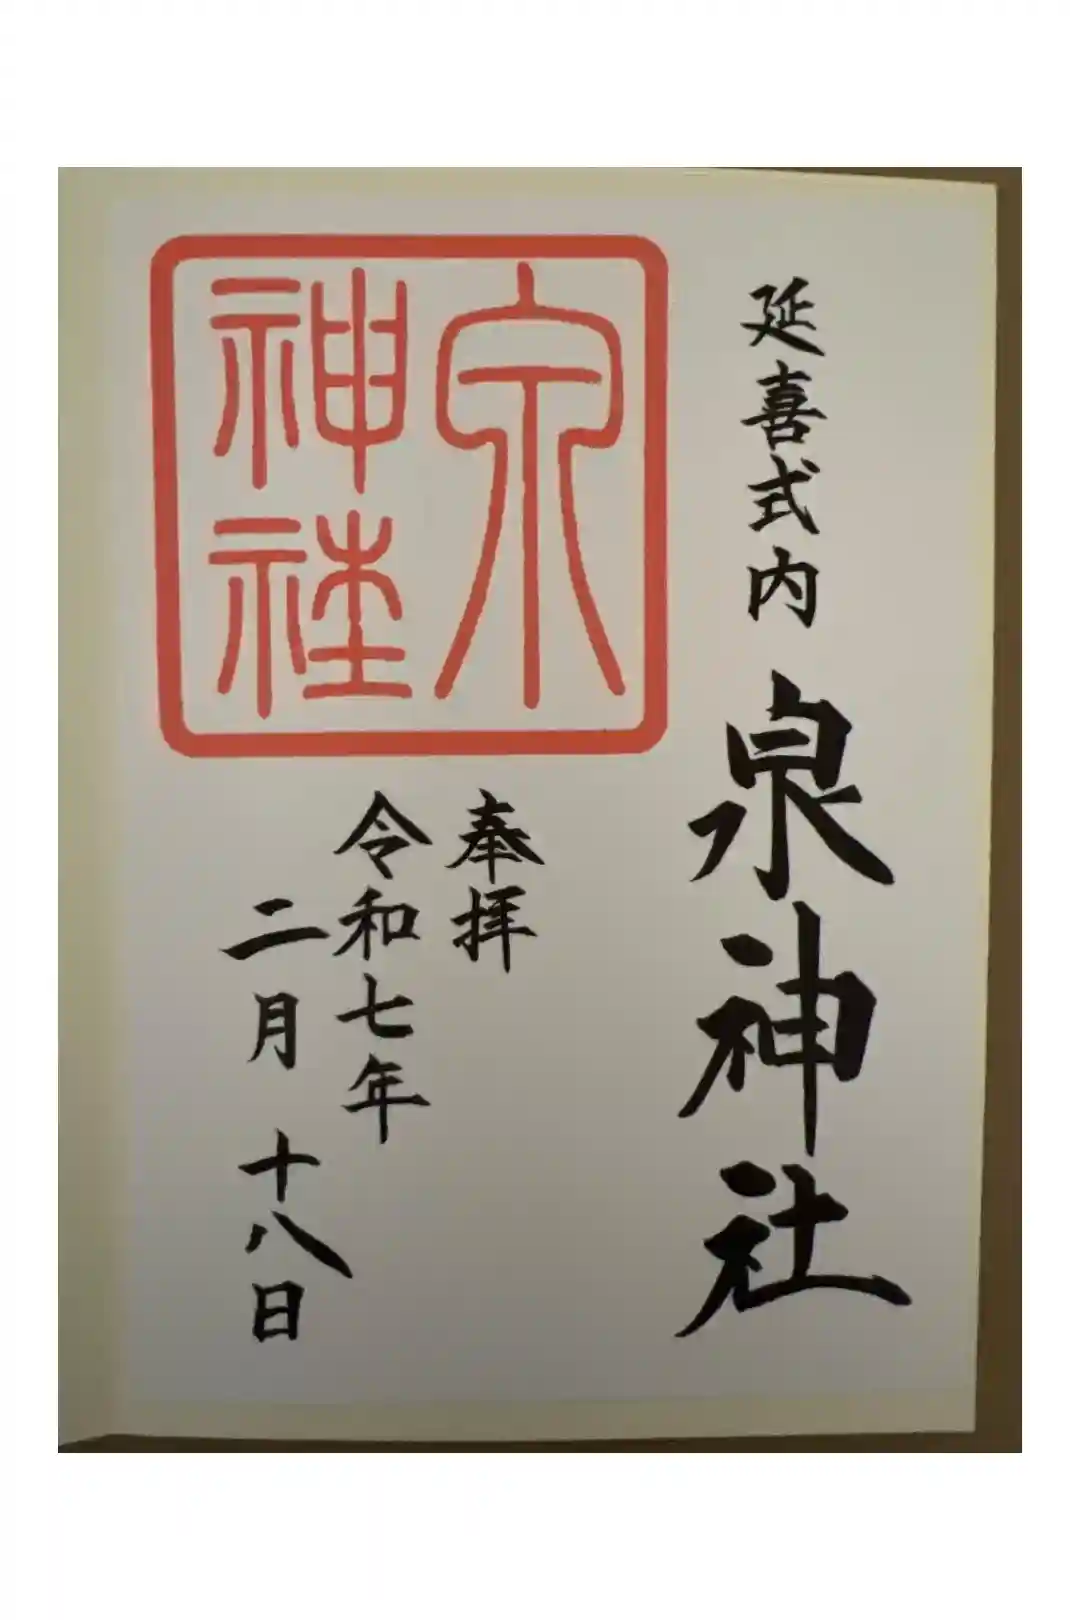 延喜式内 泉神社
奉拝
令和七年
二月 十八日
泉
神社